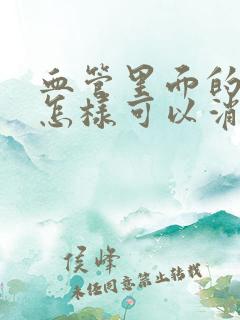 血管里面的
怎样可以消
侯峰
未经同意禁止转载